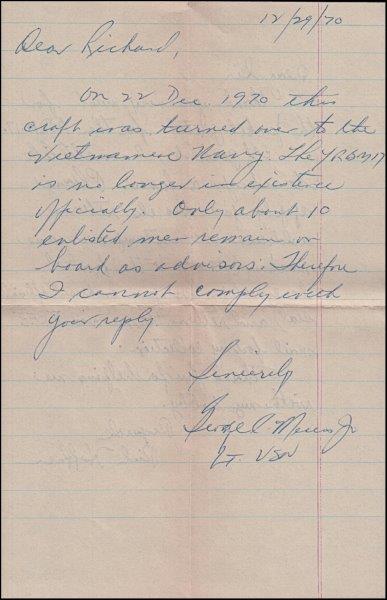 12/29/70
Dear Richard,
On 22 Dec. 1970 this
craft was turned over to the
Vietnamese Navy. The YRBM 17
is no longer in existence
officially. Only about 10
enlisted men remain on
board as advisors. Therefore
I cannot comply with
your reply
Sincerely
George
Lt. USN